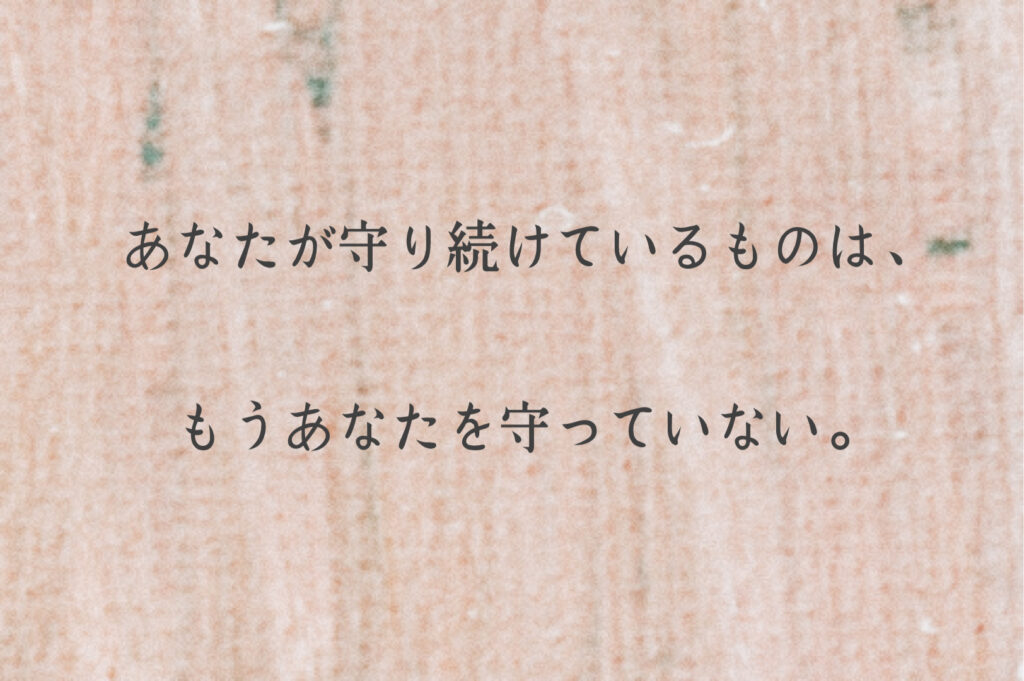 あなたが守り続けているものは、
もうあなたを守っていない。